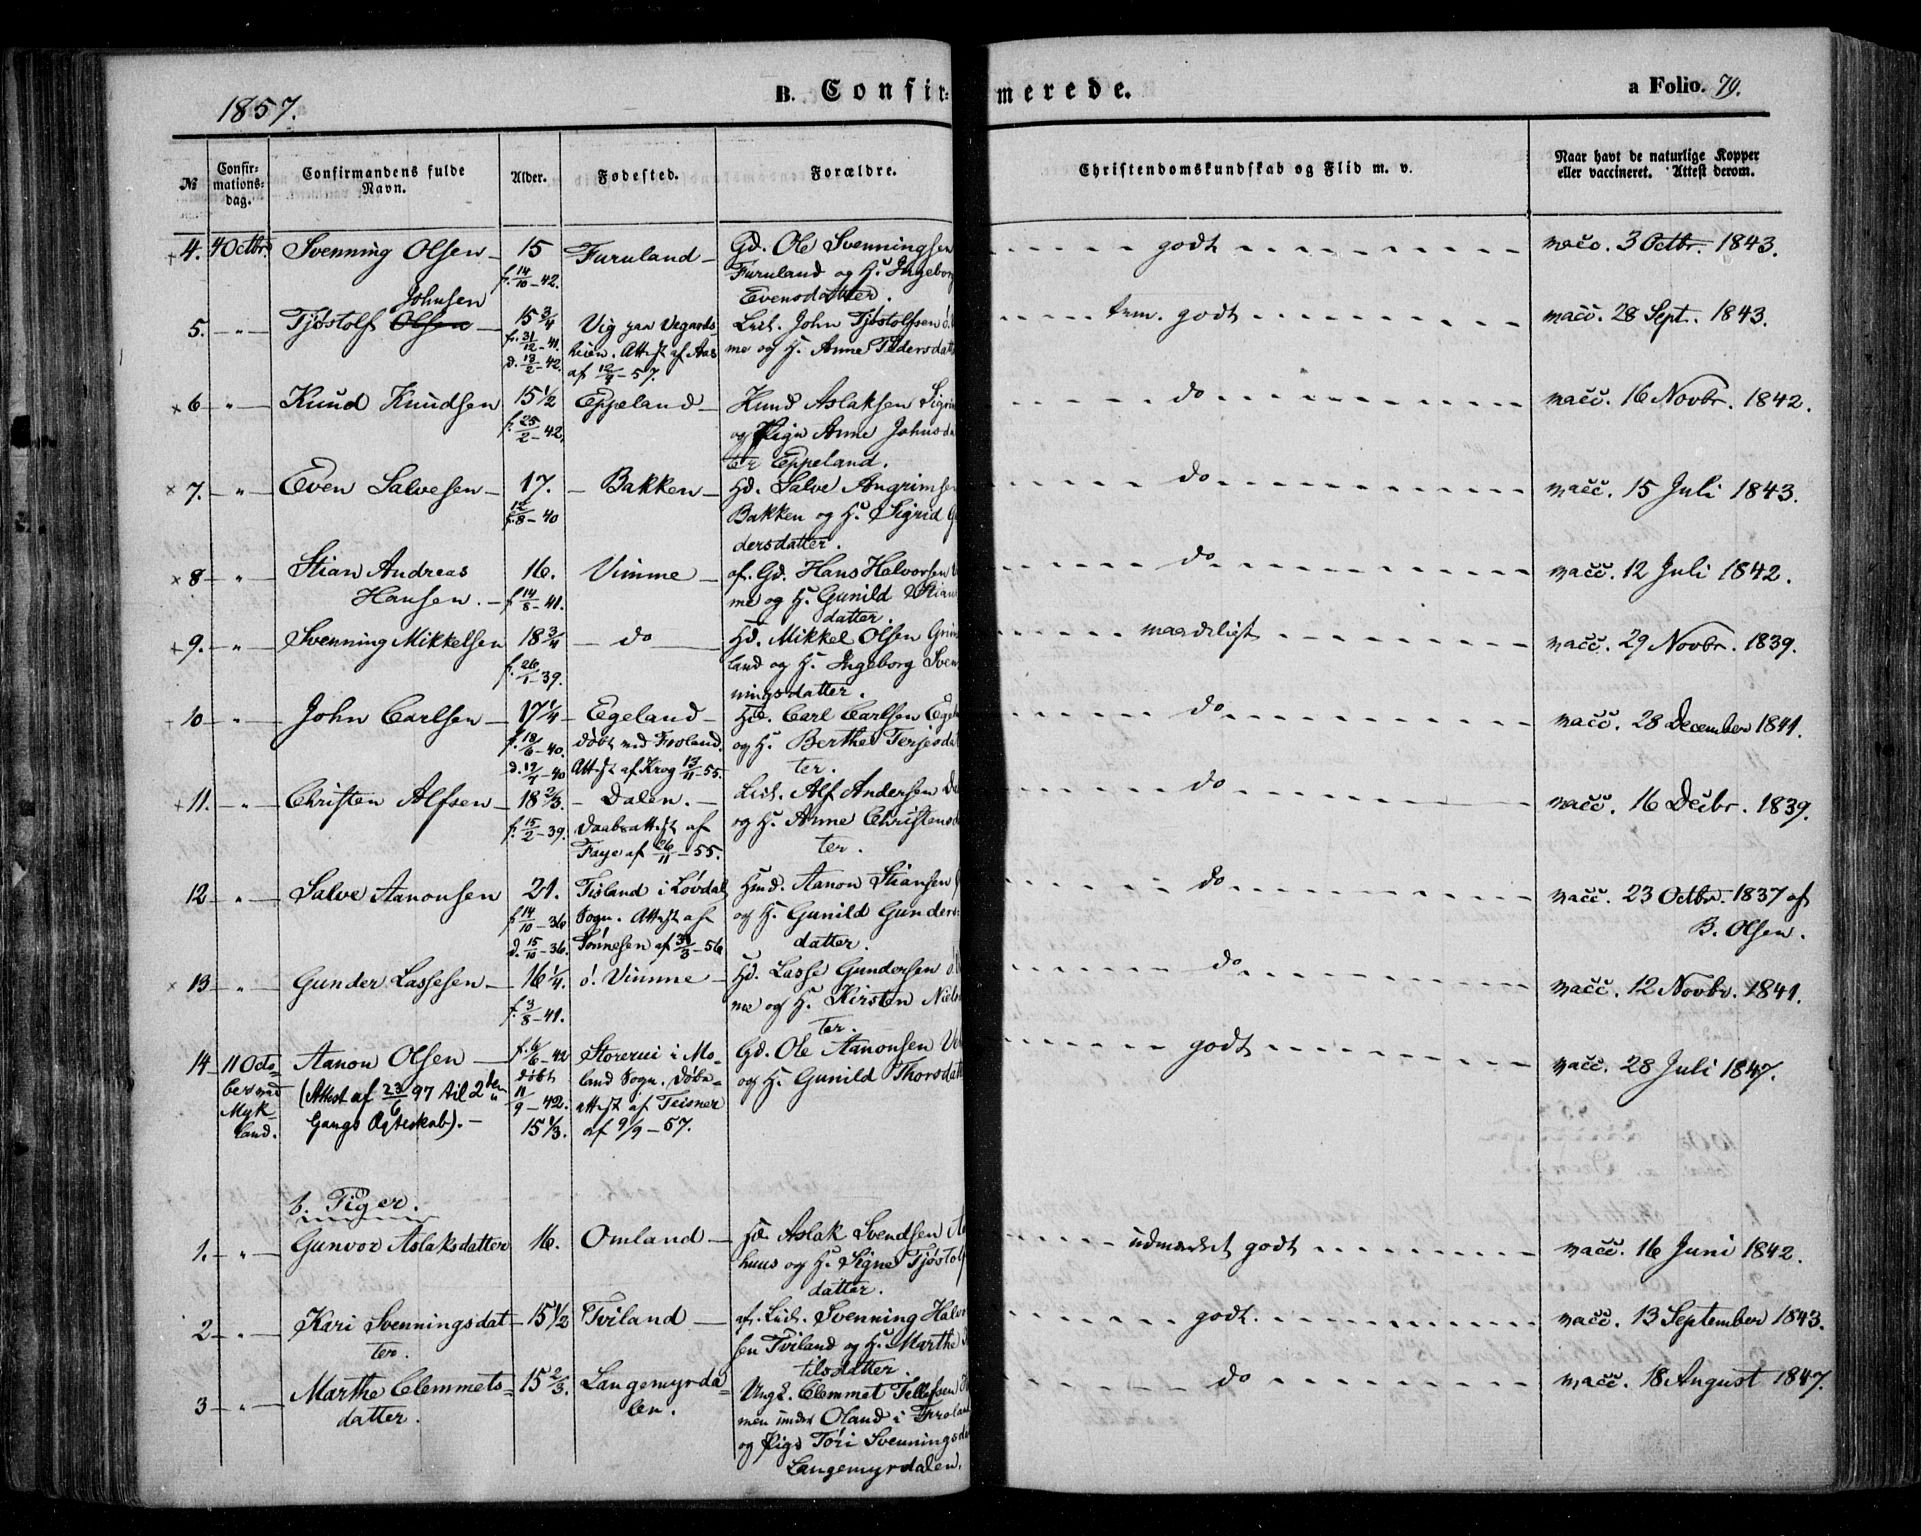 1857.
B. Confir-
merede.
a Folio. 79.
№
Confir-
mations-
dag.
Confirmandens fulde
Navn.
Alder.
Fødested.
Forældre.
Christendomskundskab og Flid m. v.
Naar havt de naturlige Kopper
eller vaccineret. Attest derom.
4. 4 Octbr. Svenning Olsen 15 Furuland Gd. Ole Svenningsen godt vacc. 3 Octbr. 1843.
f. 14/10 - 42. Furuland og H. Ingeborg
Evensdatter.
Johnsen
5. " Tjøstolf Olsen 15 3/4 Vig paa Vegards Leil. John Tjøstolfsen tem. godt vacc. 28 Sept. 1843.
f. 21/12 - 41. heien. Attest af Aas me og H. Anne Pedersdatt
d. 13/2 - 42. af 12/9 - 57.
6 " Knud Knudsen 15 1/2 Eppeland Knud Aslaksen do vacc. 16 Novbr. 1842.
f. 25/2 - 42. og Pige Anne Johnsda
ter Eppeland.
7. " Even Salvesen 17. Bakken Hd. Salve Angrimsen do vacc. 15 Juli 1843.
f. 12/8 - 40 Bakken og H. Sigrid
dersdatter.
8 " Stian Andreas 16. Vimme af. Gd. Hans Halvorsen do vacc. 12 Juli 1842.
Hansen. f. 14/8 - 41. me og H. Gunild Stians
datter.
9. " Svenning Mikkelsen 18 3/4 do Hd. Mikkel Olsen maadeligt vacc. 29 Novbr. 1839.
f. 26/1 - 39. land og H. Ingeborg Sven
ningsdatter.
10 " John Carlsen 17 1/4 Egeland Hd. Carl Carlsen do vacc. 28 December 1841.
f. 18/6 - 40. døbt ved Froland. og H. Berthe Terjesda
d. 12/7 - 40 Attest af Krog 13/11 - 55. ter.
11. " Christen Alfsen 18 2/3. Dalen. Leil. Alf Andersen do vacc. 16 Decbr. 1839.
f. 15/2 - 39. Daabsattest af og H. Anne Christensda
Faye af 26/11 - 55. ter.
12 " Salve Aanonsen 21. Tisland i Løvdal Hmd. Aanon Stiansen do vacc. 23 Octbr. 1837 af
f. 14/10 - 36 Sogn. Attest af og H. Gunild Gunders- B. Olsen.
d. 15/10 - 36. Tønnesen af 31/3 - 56 datter.
13 " Gunder Lassesen 16 1/4. ø. Vimme Hd. Lasse Gundersen do vacc. 12 Novbr. 1841.
f. 3/8 - 41. me og H. Kirsten Niels
ter.
14 11 Octo- Aanon Olsen f. 6/6 - 42 Storerui i Mo- Gd. Ole Aanonsen godt vacc. 28 Juli 1847.
ber ved (Attest af 23/6 97 til 2den døbt land Sogn. Døbe- og H. Gunild Thorsdatt
Myk- Gangs Ægteskab). 11/9 - 42. attest af Teisner
land. 15 1/3. af 9/9 - 57.
b. Piger.
1. " Gunvor Aslaksdatter 16. Omland Hd. Aslak Svendsen udmærket godt vacc. 16 Juni 1842.
huus og H. Signe Tjøstolf
datter.
2 " Kari Svenningsdat 15 1/2 Tviland af. Leil. Svenning Halvor godt. vacc. 13 September 1843.
ter. sen Tviland og H. Marthe
tilsdatter.
3 " Marthe Clemmets- 15 2/3. Langemyrda- Ungk. Clemmet Tellefsen do vacc. 18 August 1847.
datter. len. men under Oland i Froland
og Pige Tori Svenningsda
Langemyrdalen.